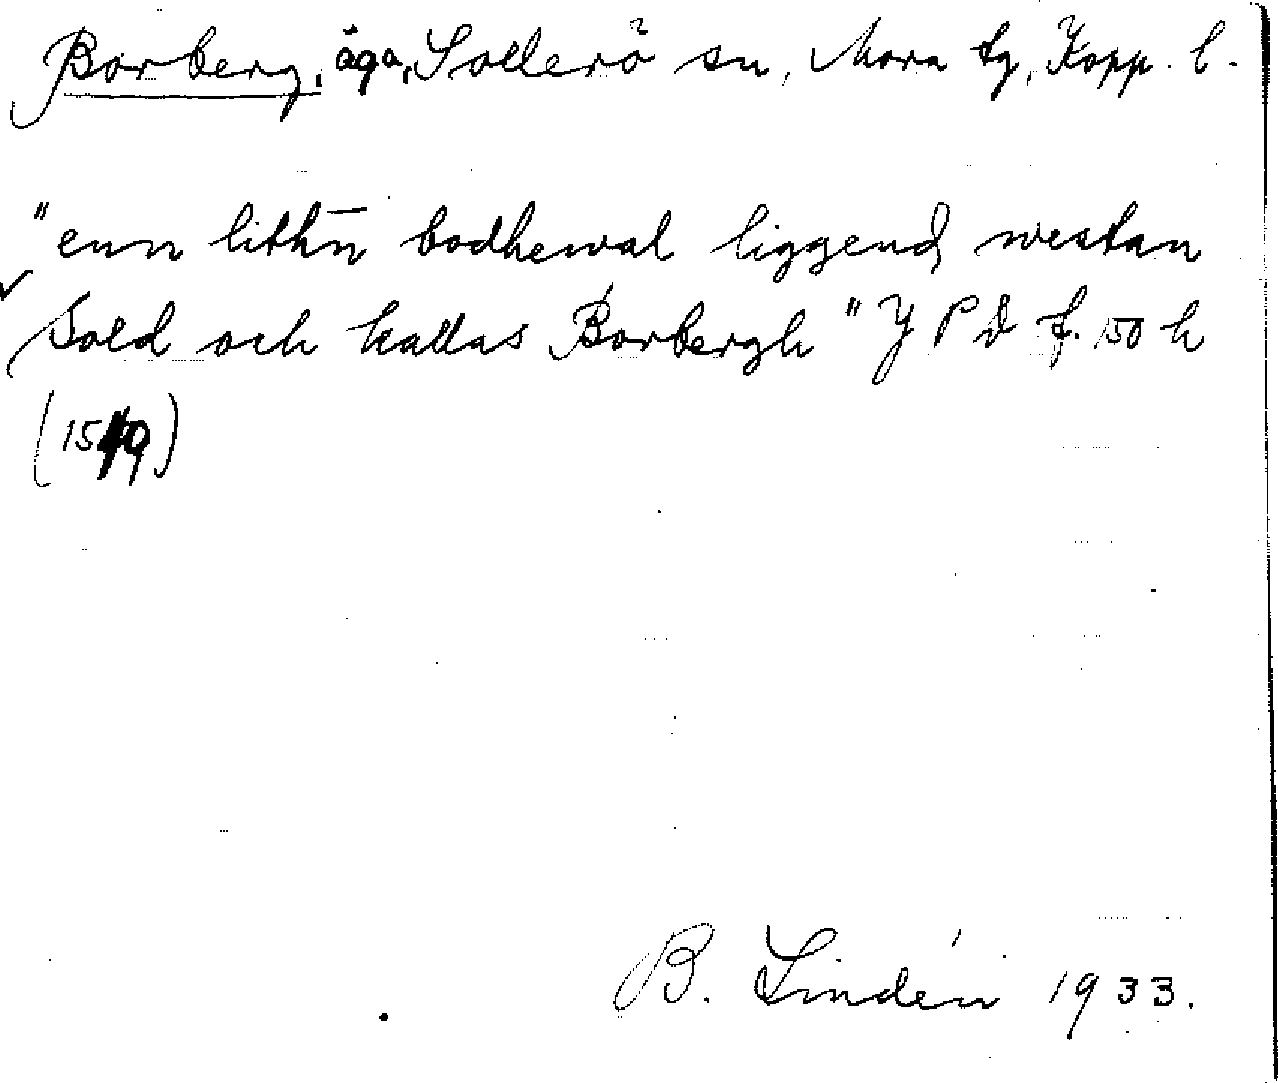 Borberg, äga, Sollerö sn, Mora tg, Kopp. l.
"enn lithn̄ bodhewal liggend westan
Sold och kallas Borbergh" Y P D f. 150 h
(1549)
B. Lindén 1933.